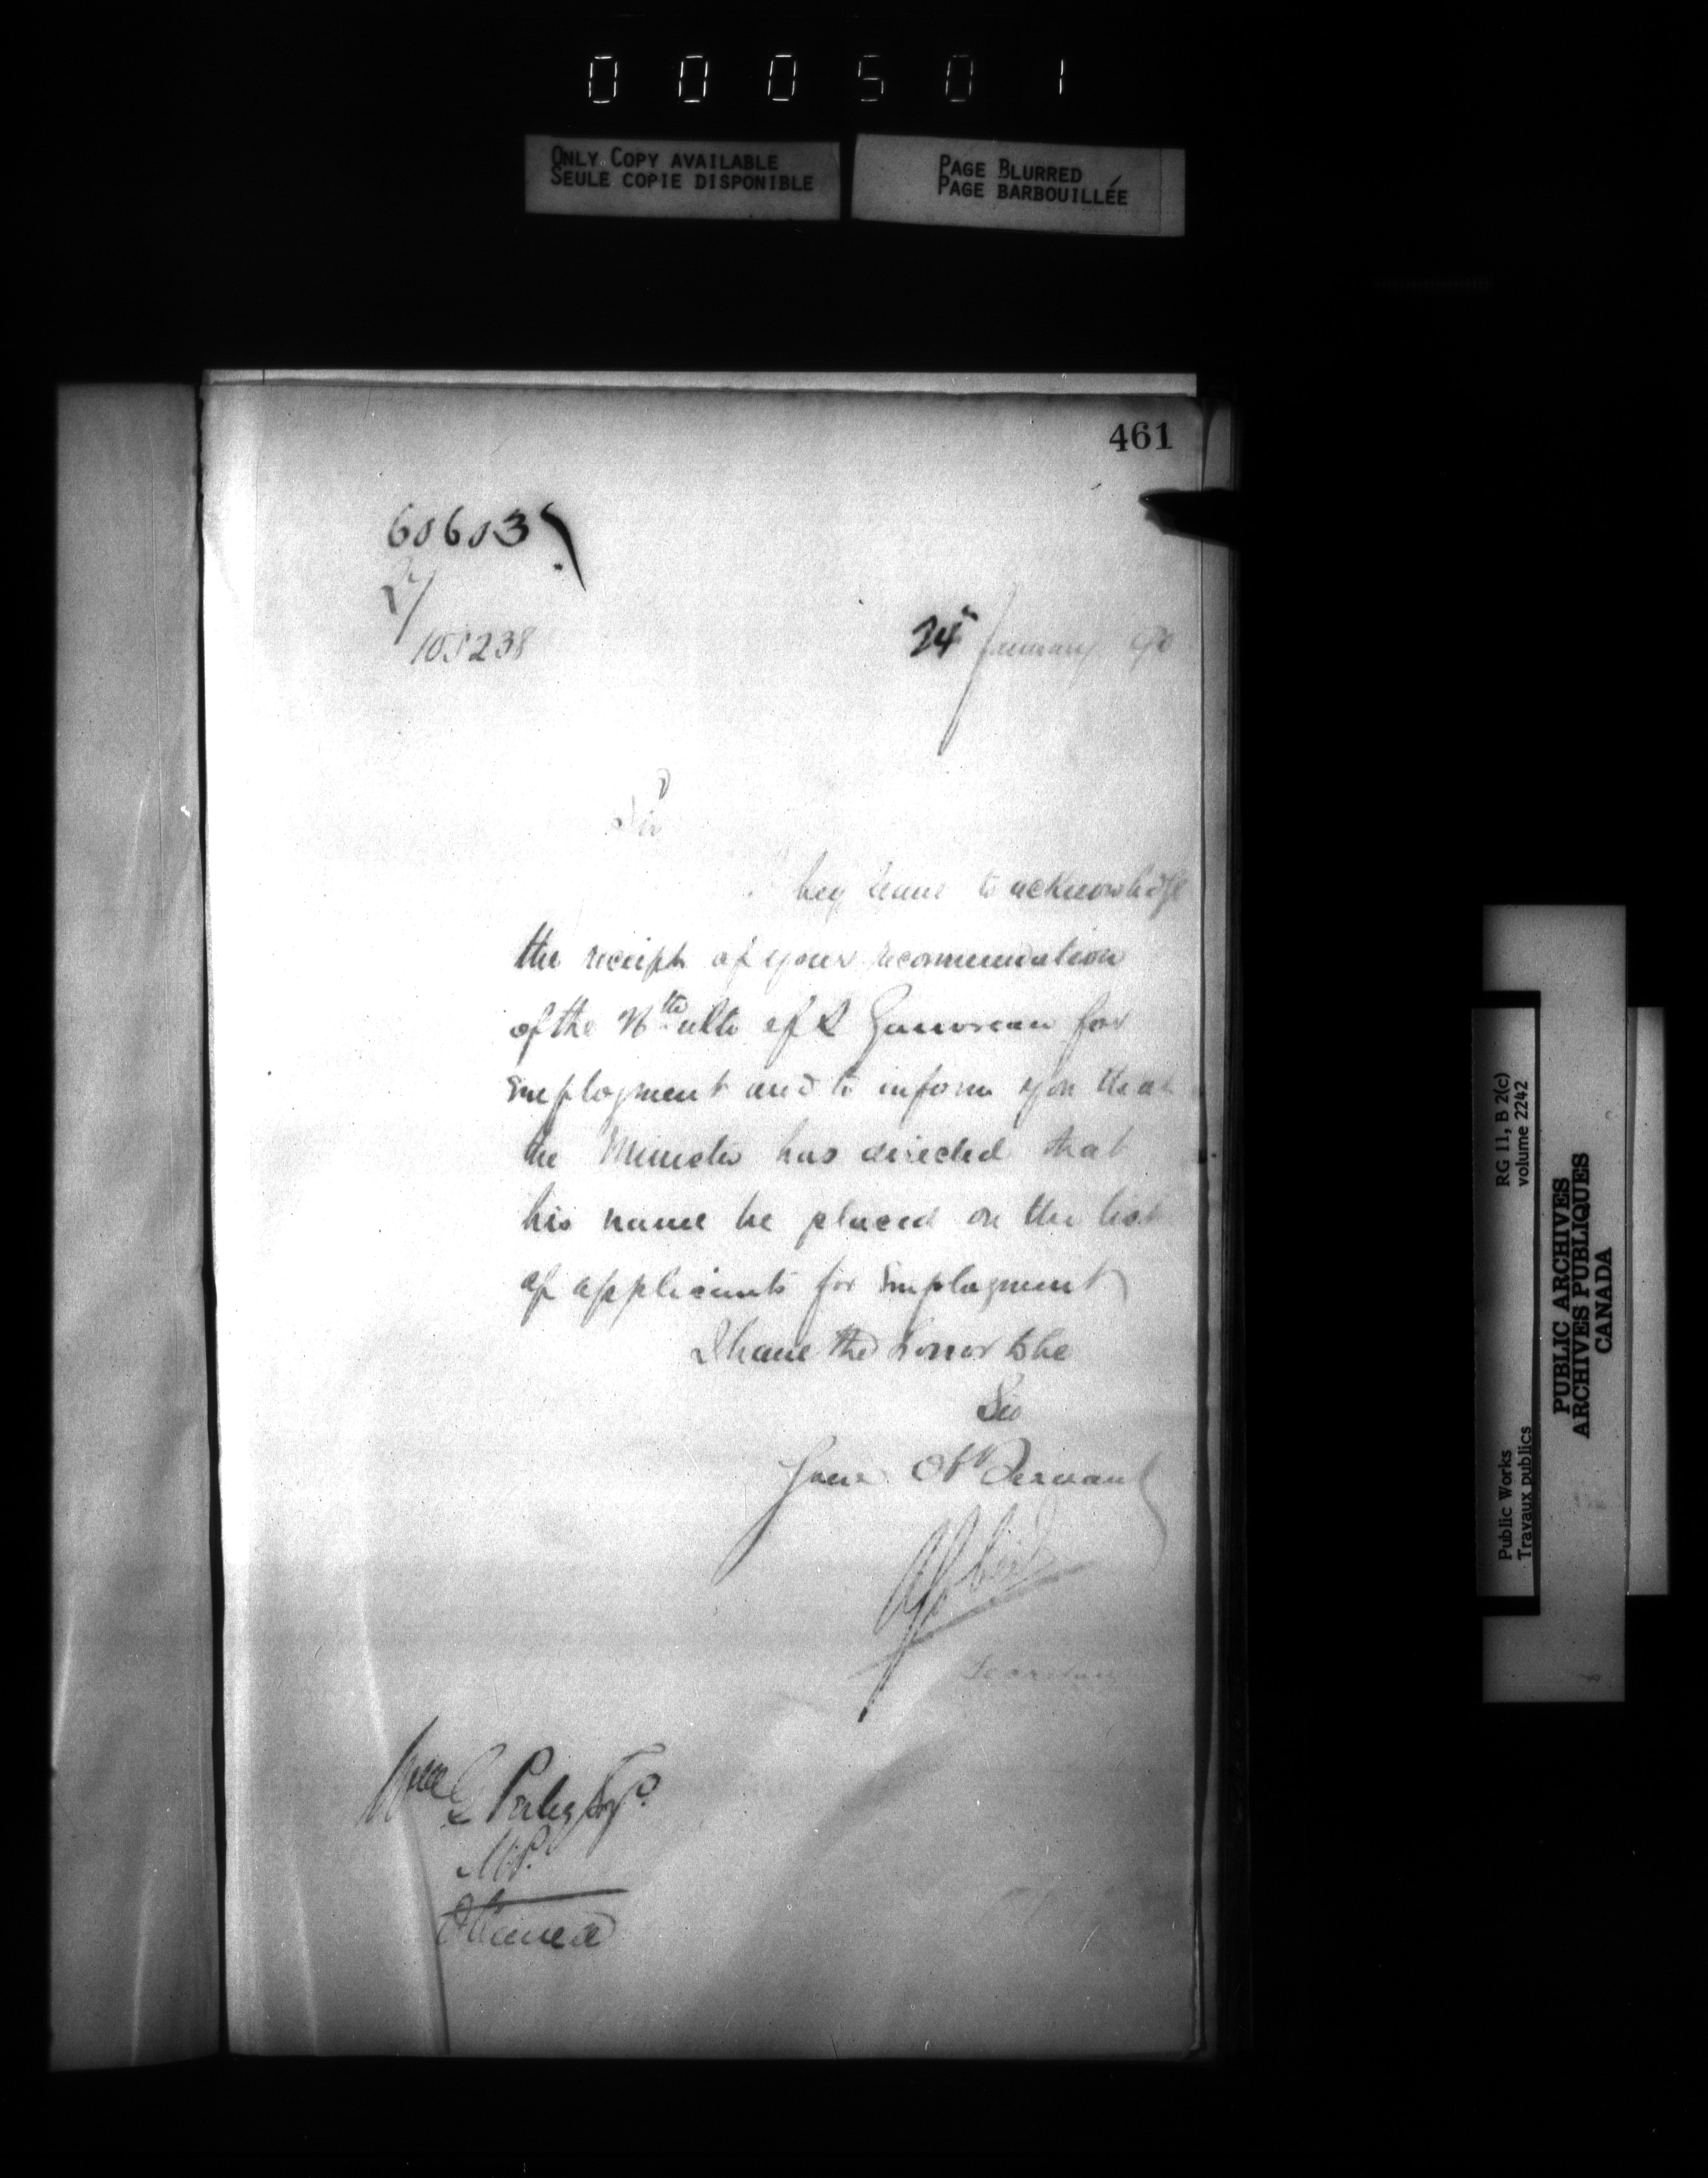 000501
ONLY COPY AVAILABLE
SEULE COPIE DISPONIBLE
PAGE BLURRED
PAGE BARBOUILLÉE
461
60603
105238
24th January 90
Sir
beg leave to acknowledge
the receipt of your recommendation
of the ulto of for
Employment and to inform you that
the Minister has directed that
his name be placed on the list
of applicants for Employment
I have the honor to be
Sir
Your Obt Servant
Secretary
Esqr
M.P.
Ottawa
Public Works
Travaux publics
RG 11, B 2(c)
volume 2242
PUBLIC ARCHIVES
ARCHIVES PUBLIQUES
CANADA